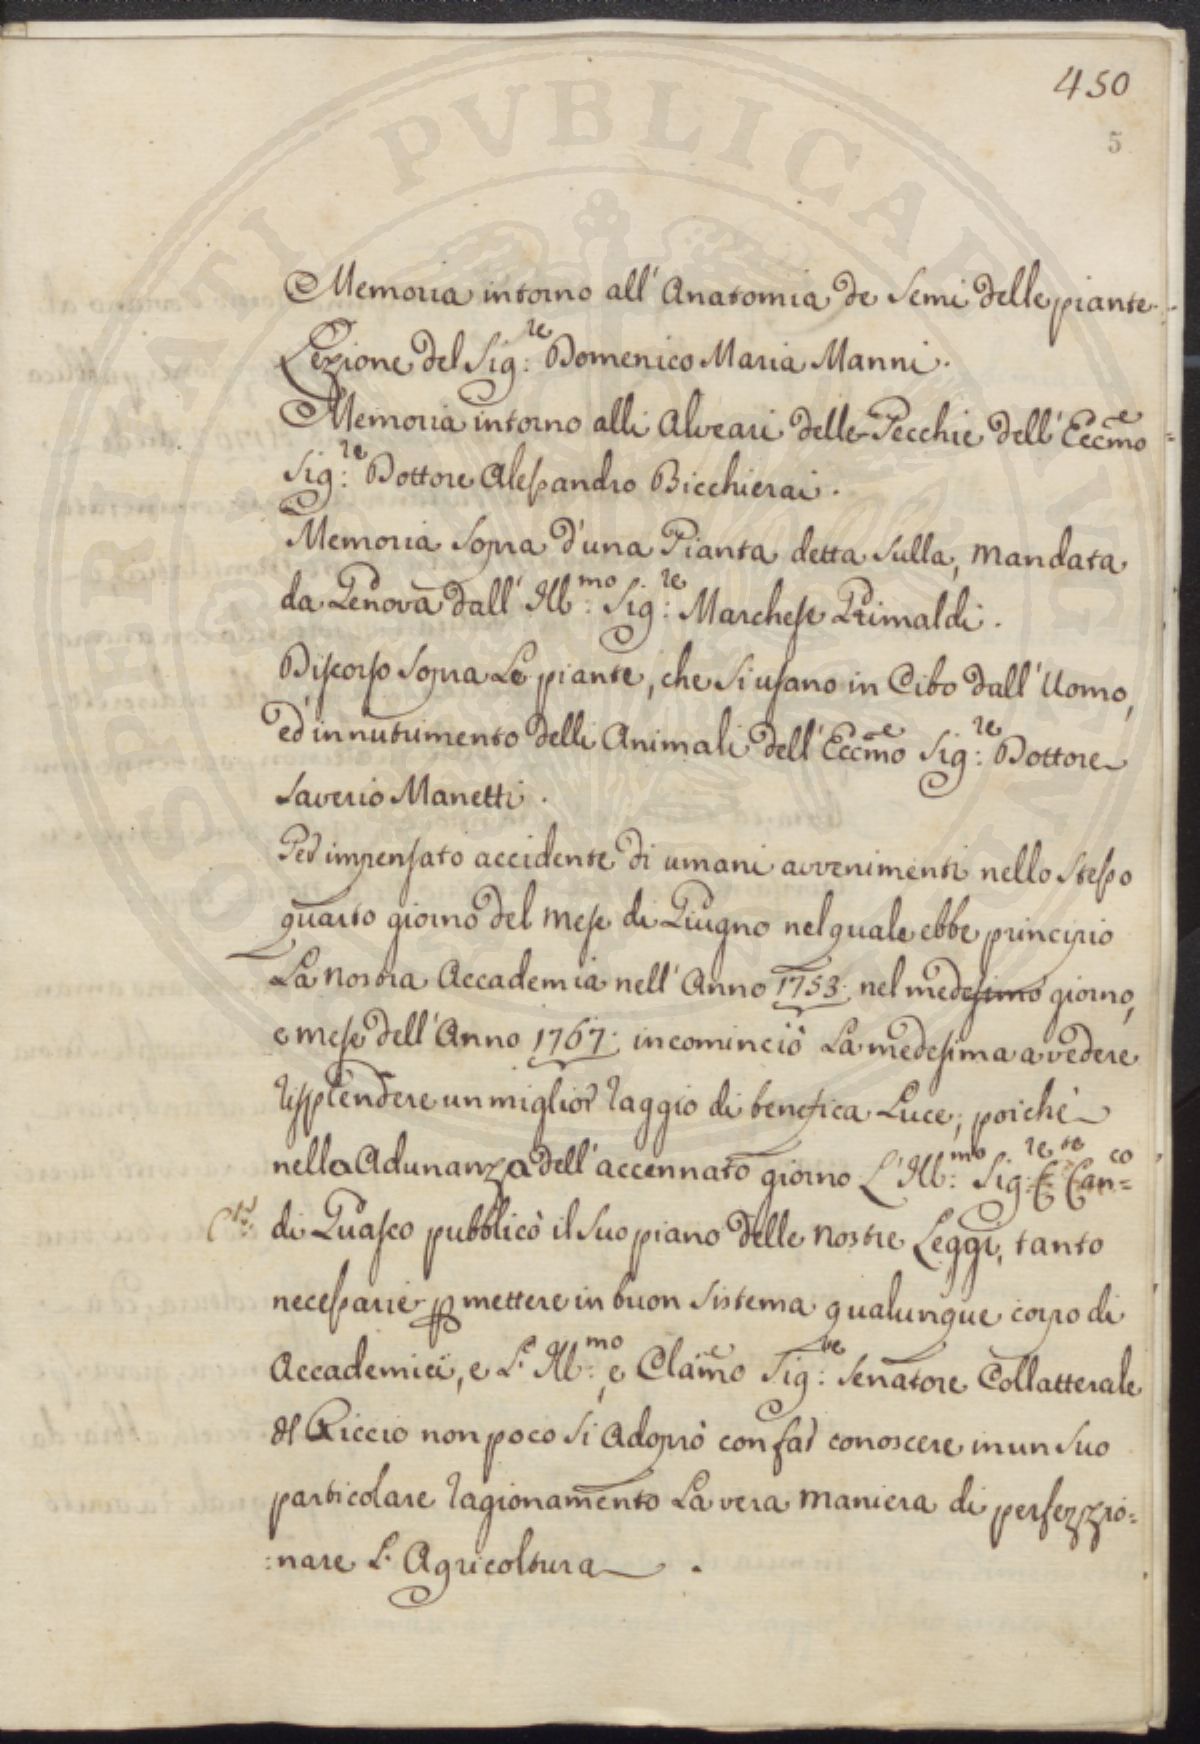 450
5
Memoria intorno all' Anatomia de Semi delle piante.
Lezione del Sig:re Domenico Maria Manni.
Memoria intorno alli Alveari delle Pecchie dell' Eccmo
Sig:re Dottore Alessandro Bicchierai.
Memoria sopra d'una Pianta detta Sulla, mandata
da Genova dall' Ill:mo Sig:re Marchese Grimaldi.
Discorso sopra Le piante, che si usano in Cibo dall' Uomo,
ed in nutrimento delli Animali dell' Eccmo Sig:re Dottore
Saverio Manetti.
Per impensato accidente di umani avvenimenti nello stesso
quarto giorno del mese di Giugno nel quale ebbe principio
La nostra Accademia nell' Anno 1753. nel medesimo giorno,
e mese dell' Anno 1767. incominciò La medesima a vedere
risplendere un miglior raggio di benefica Luce; poichè
nella Adunanza dell' accennato giorno L' Ill:mo Sig:re Can=co
di Guasco pubblicò il suo piano delle nostre Leggi, tanto
necessarie p mettere in buon sistema qualunque corpo di
Accademici, e L' Ill:mo, e Clamo Sig:re Senatore Collatterale
del Riccio non poco si adoprò con far conoscere in un suo
particolare ragionamento La vera maniera di perfezzio=
:nare L' Agricoltura.
SPERATI PVBLICAE